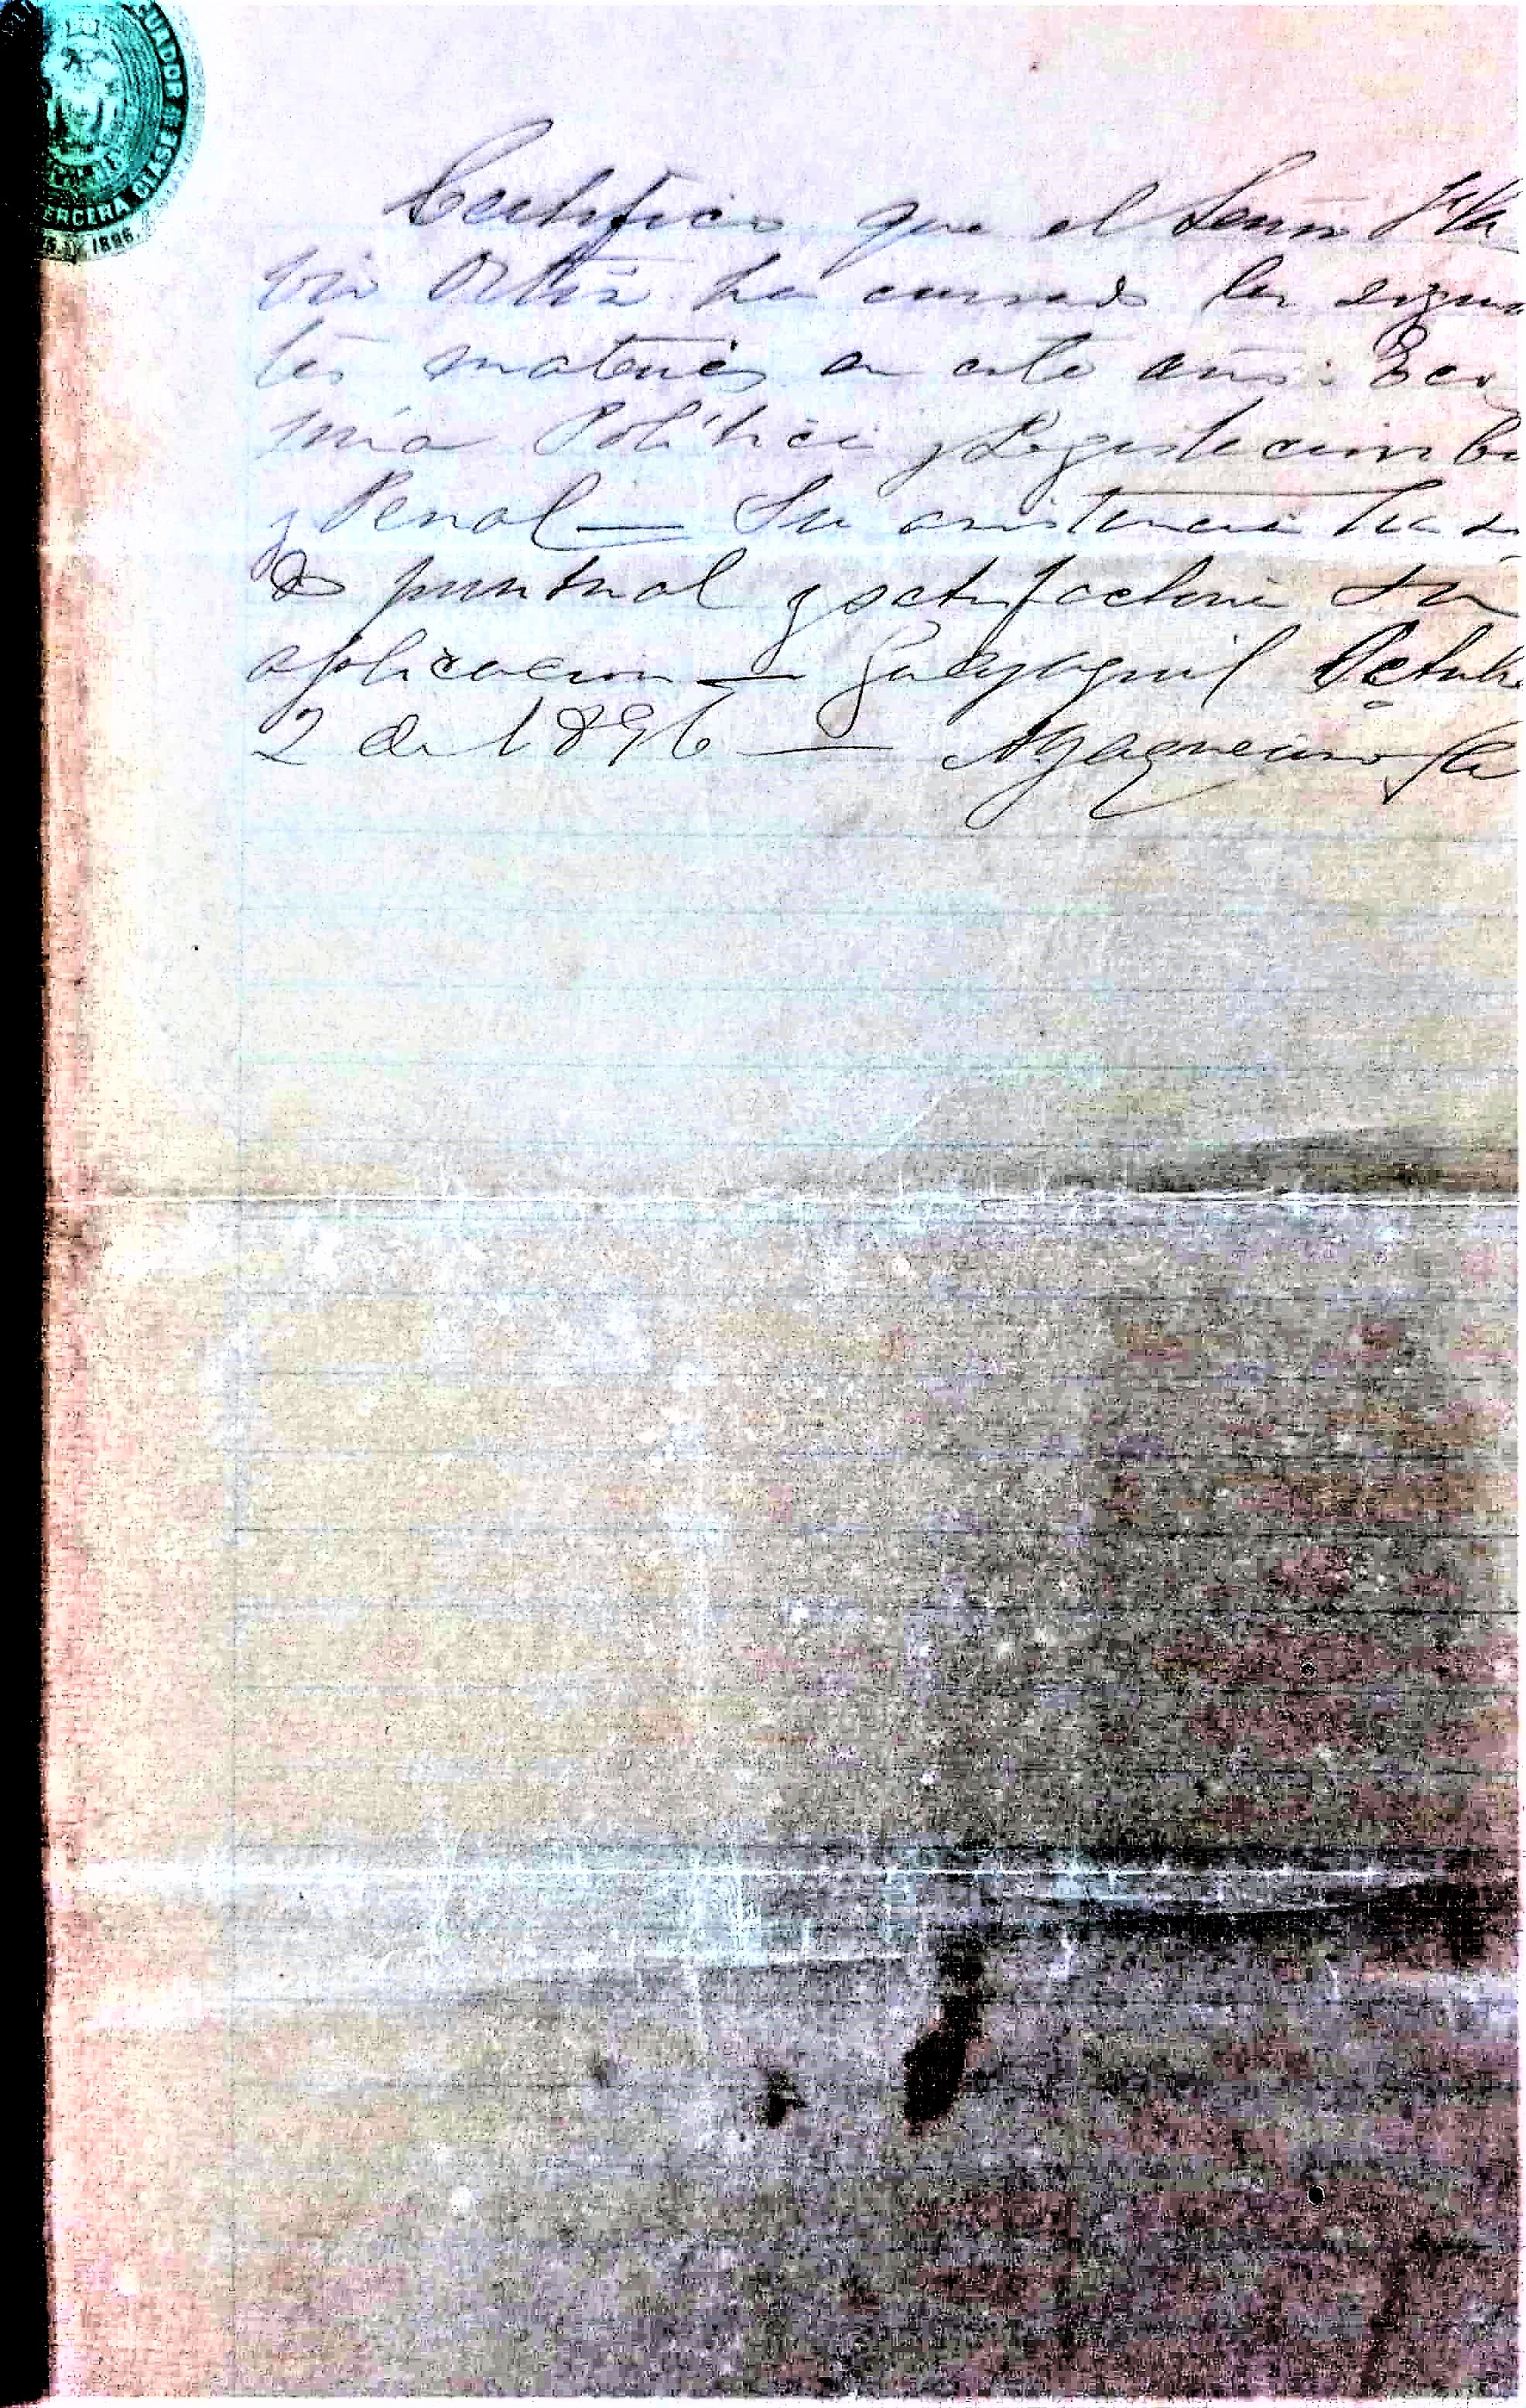 ECUADOR
TERCERA CLASE
1896
Certifico que el Señor Fla
vio Ortiz ha cursado las siguien
tes materias en este año: Econo
mía Política y Legislacion Ci
y Penal — Su asistencia ha si
do puntual y satisfactoria su
aplicacion — Guayaquil Octubre
2 de 1896 —